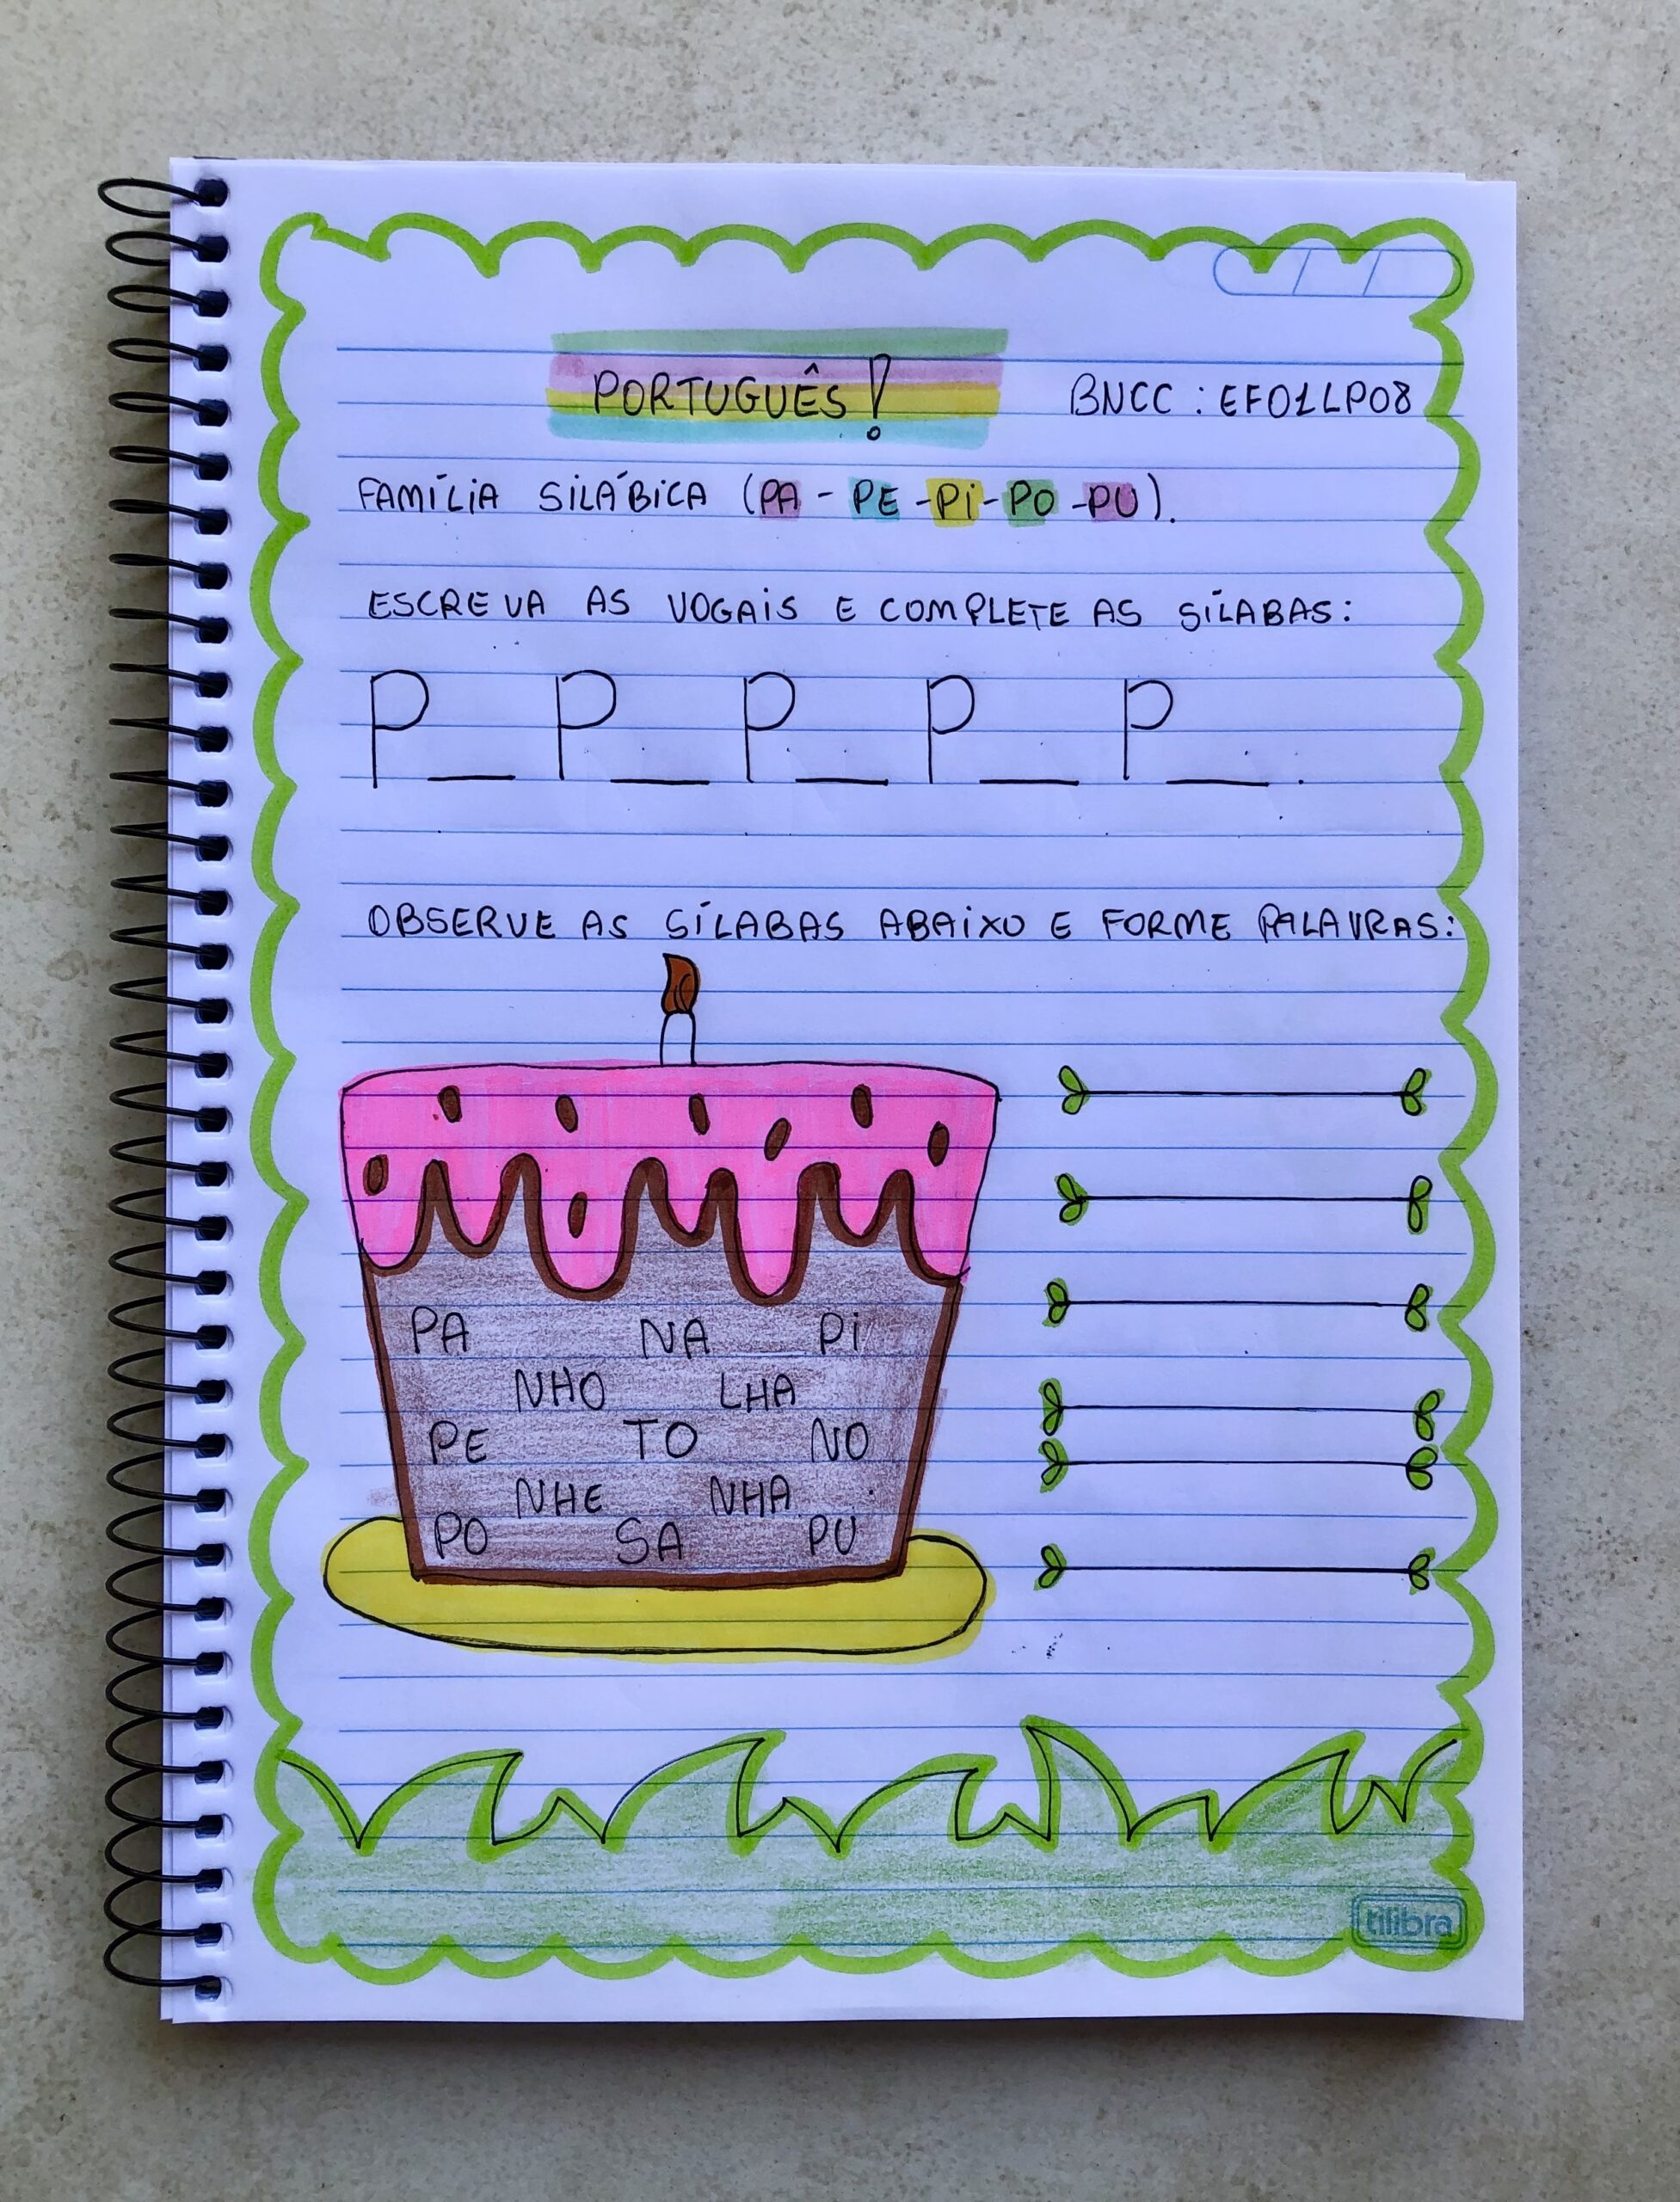 PORTUGUÊS! BNCC: EF01LP08
FAMÍLIA SILÁBICA (PA - PE - Pi - PO - PU).
ESCREVA AS VOGAiS E COMPLETE AS SÍLABAS:
P_ P_ P_ P_ P_.
OBSERVE AS SÍLABAS ABAiXO E FORME PALAVRAS:
PA NA Pi
NHO LHA
PE TO NO
NHE NHA
PO SA PU
tilibra